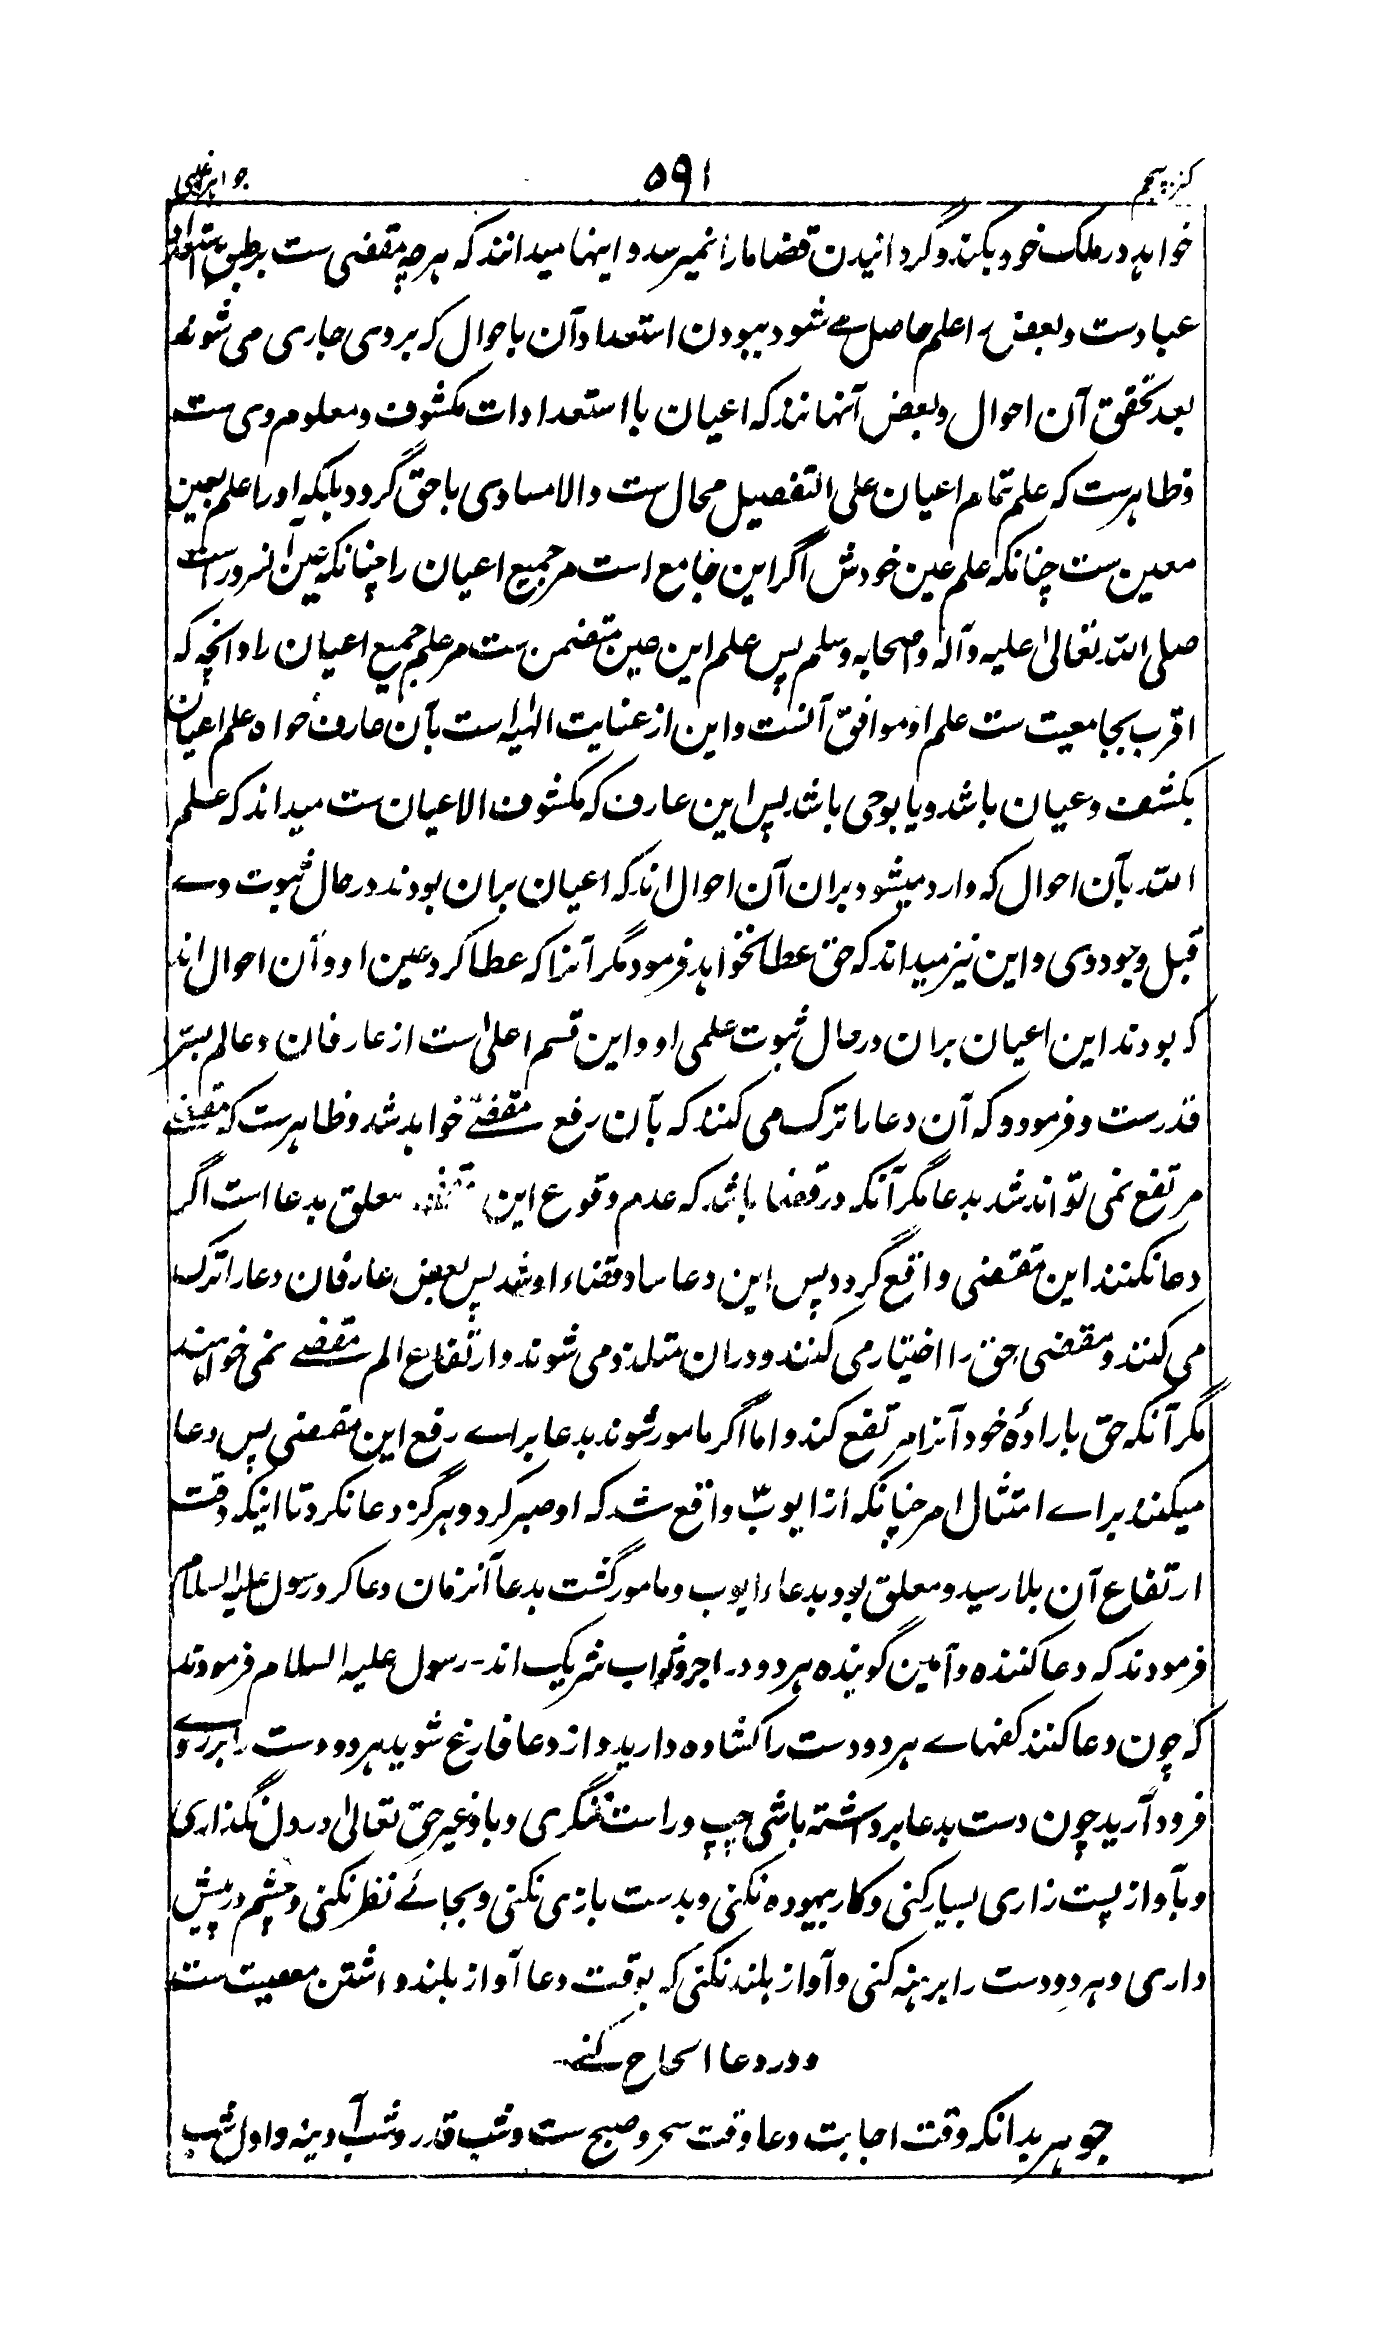 کنز پنجم ۵۹۱ جواہر غیبی
خواہد در ملک خود بکند و گردانیدن قضا مارا نمیرسد و اینہا میدانند کہ ہرچہ مقضی ست بر طبق استعداد
عبادست و بعض را علم حاصل مے شود ببودن استعداد آن باحوال کہ بروی جاری می شوند
بعد تحقق آن احوال و بعض آنہا اند کہ اعیان با استعدادات مکشوف و معلوم وی ست
و ظاہرست کہ علم تمام اعیان علی التفصیل محال ست والا مساوی باحق گردد بلکہ اورا علم بعین
معین ست چنانکہ علم عین خودش اگر این جامع است مر جمیع اعیان را چنانکہ عین آنسرور است
صلی اللہ تعالیٰ علیہ وآلہ واصحابہ وسلم پس علم این عین متضمن ست مر علم جمیع اعیان را و انچہ کہ
اقرب بجامعیت ست علم او موافق آنست و این از عنایت الٰہیہ است بآن عارف خواہ علم اعیان
بکشف و عیان باشد و یا بوحی باشد پس این عارف کہ مکشوف الاعیان ست میداند کہ علم
اللہ بآن احوال کہ وارد میشود بران آن احوال اند کہ اعیان بران بودند در حال ثبوت وے
قبل وجود وی و این نیز میداند کہ حق عطا نخواہد فرمود مگر آنرا کہ عطا کرد عین او و آن احوال اند
کہ بودند این اعیان بران در حال ثبوت علمی او و این قسم اعلیٰ است از عارفان و عالم بسر
قدرست و فرمود و کہ آن دعا را ترک می کنند کہ بآن رفع مقضے خواہد شد و ظاہرست کہ مقضے
مرتفع نمی تواند شد بدعا مگر آنکہ در قضا باشد کہ عدم وقوع این معلق بدعا است اگر
دعا نکنند این مقضی واقع گردد پس این دعا ساد قضاء او شد پس بعض عارفان دعا را ترک
می کنند و مقضی حق را اختیار می کنند و دران متلذذ می شوند و ارتفاع الم مقضے نمی خواہند
مگر آنکہ حق بارادۂ خود آنرا مرتفع کند و اما اگر مامور شوند بدعا براے رفع این مقضی پس دعا
میکنند براے امتثال امر چنانکہ از ایوبؑ واقع شد کہ او صبر کرد و ہرگز دعا نکرد تا اینکہ وقت
ارتفاع آن بلا رسید و معلق بود بدعاء ایوب و مامور گشت بدعا آنزمان دعا کرد رسول علیہ السلام
فرمودند کہ دعا کنندہ و آمین گویندہ ہر دو در اجر و ثواب شریک اند۔ رسول علیہ السلام فرمودند
کہ چون دعا کنند کفہاے ہر دو دست را کشادہ دارید و از دعا فارغ شوید ہر دو دست را بر روے
فرود آرید چون دست بدعا برداشتہ باشی چپ و راست ننگری و یاد غیر حق تعالیٰ در دل نگذاری
و بآواز پست زاری بسیار کنی و کار بیہودہ نکنی و بدست بازی نکنی و بجائے نظر نکنی و چشم در پیش
داری و ہر دو دست را برہنہ کنی و آواز بلند نکنی کہ بوقت دعا آواز بلند داشتن معصیت ست
و در دعا الحاح کنے
جوہر بدانکہ وقت اجابت دعا وقت سحر و صبح ست و شب قدر و شب آدینہ و اول شب